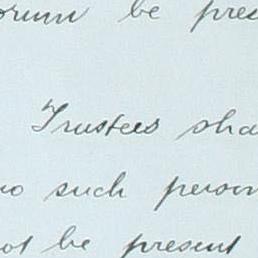 orum be pres
Trustees sha
no such person
not be present